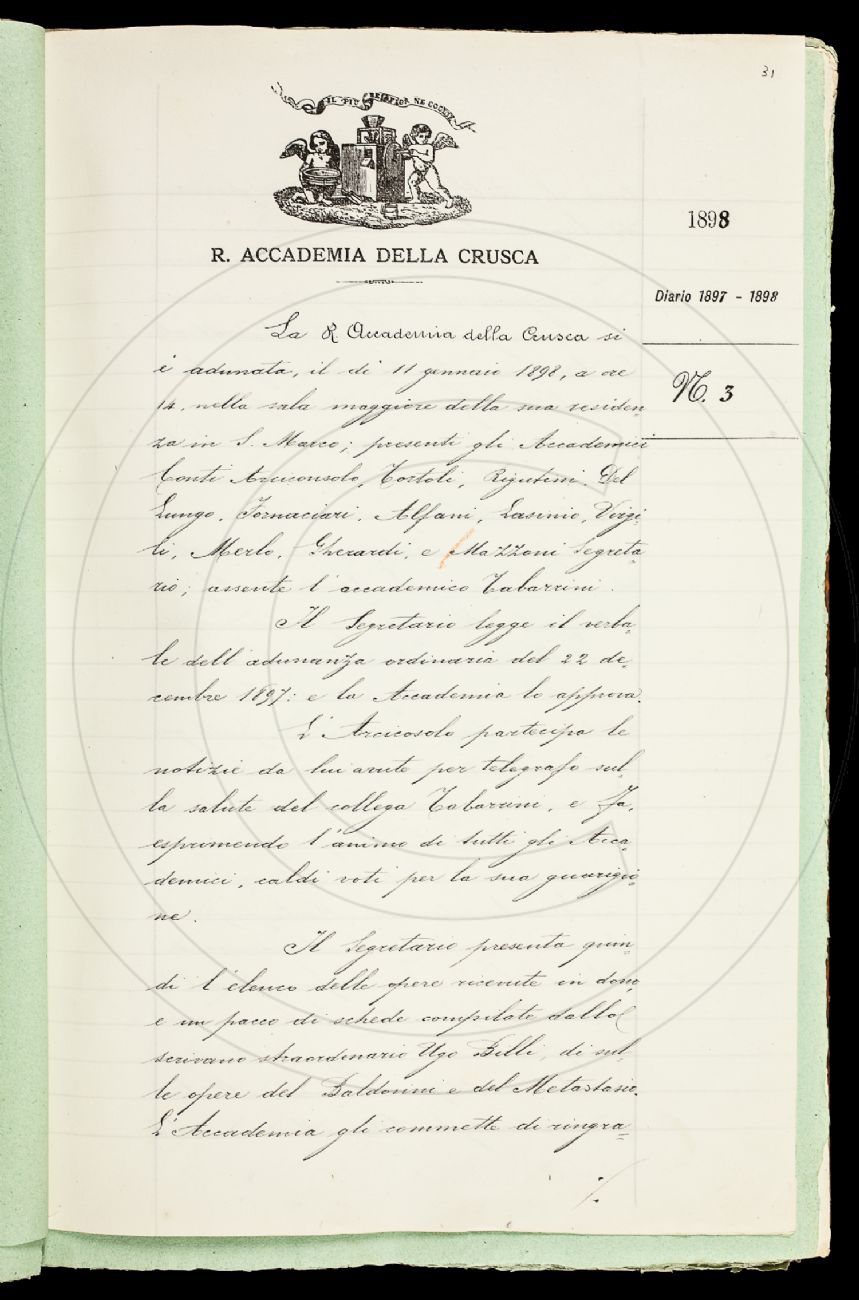 31
IL PIÙ BEL FIOR NE COGLIE
1898
R. ACCADEMIA DELLA CRUSCA
Diario 1897 - 1898
N. 3
La R Accademia della Crusca si
è adunata, il dì 11 gennaio 1898, a ore
14, nella sala maggiore della sua residen„
za in S. Marco; presenti gli Accademici
Conti Arciconsolo, Tortoli, Rigutini, Del
Lungo, Fornaciari, Alfani, Lasinio, Virgi„
li, Merlo, Gherardi, e Mazzoni Segreta„
rio; assente l'accademico Tabarrini.
Il Segretario legge il verba„
le dell'adunanza ordinaria del 22 de„
cembre 1897: e la Accademia lo approva.
L'Arcicosolo partecipa le
notizie da lui avute per telegrafo sul„
la salute del collega Tabarrini, e fa,
esprimendo l'animo di tutti gli Acca„
demici, caldi voti per la sua guarigio„
ne.
Il Segretario presenta quin„
di l'elenco delle opere ricevute in dono,
e un pacco di schede compilate dallo
scrivano straordinario Ugo Billi, di sul„
le opere del Baldovini e del Metastasio.
L'Accademia gli commette di ringra„
./.